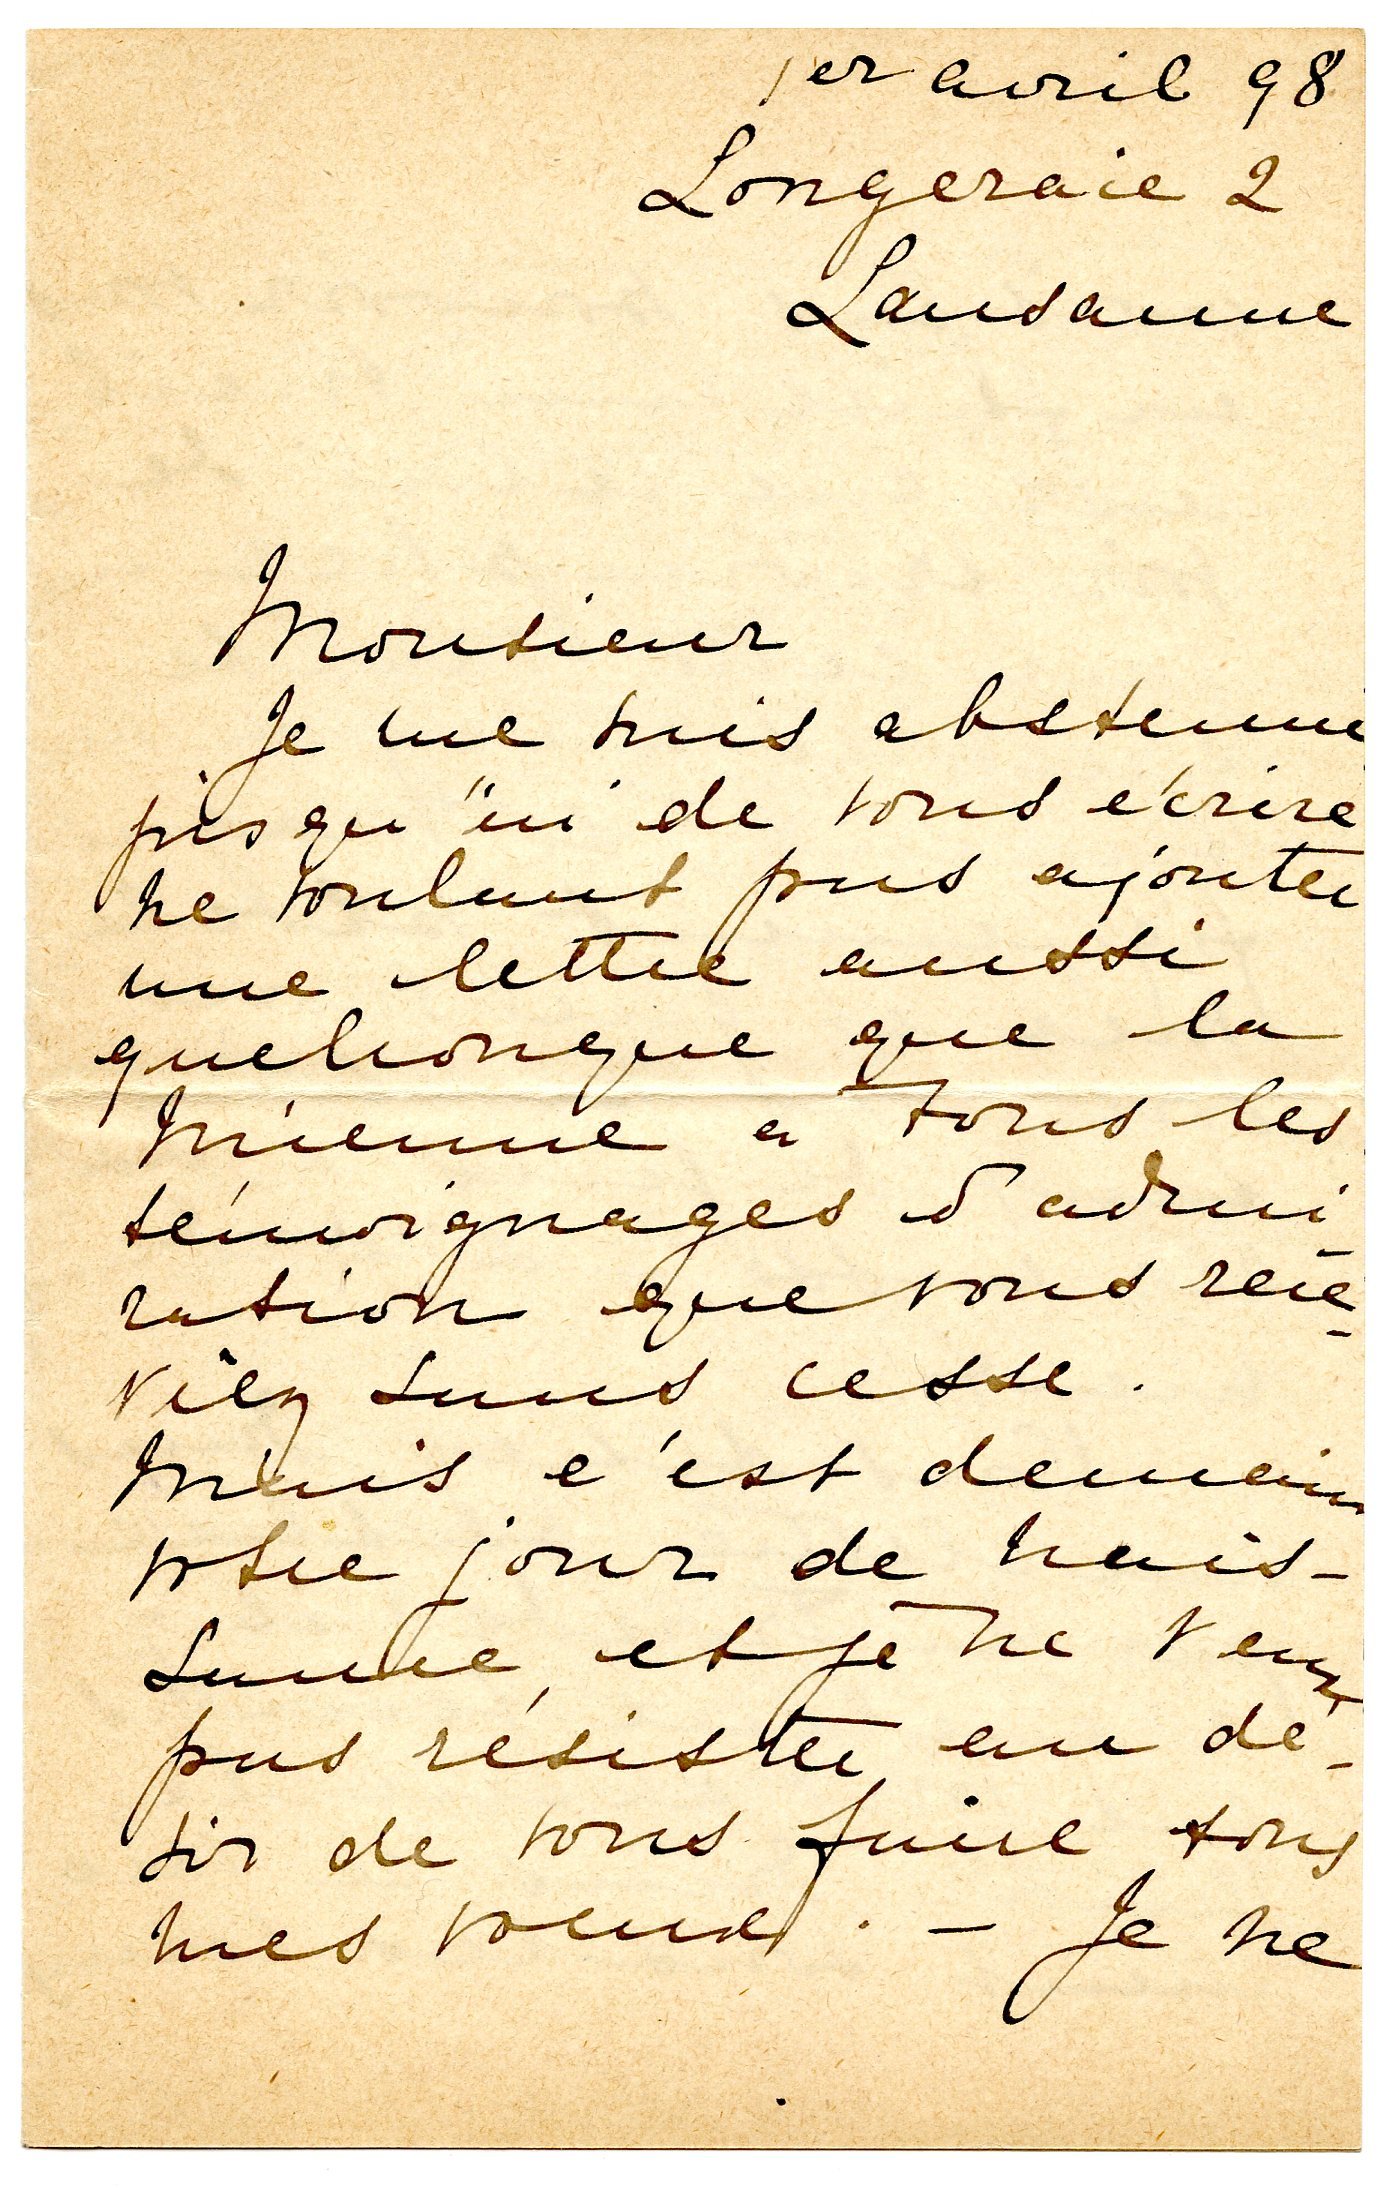 1er avril 98
Longeraie 2
Lausanne
Monsieur
Je me suis abstenue
jusqu'ici de vous écrire
ne voulant pas ajouter
une lettre aussi
quelconque que la
mienne à tous les
témoignages d'admi
ration que vous rece-
viez sans cesse.
Mais c'est demain
votre jour de nais-
sance, et je ne veux
pas résister au dé-
sir de vous faire tous
mes vœux. — Je ne